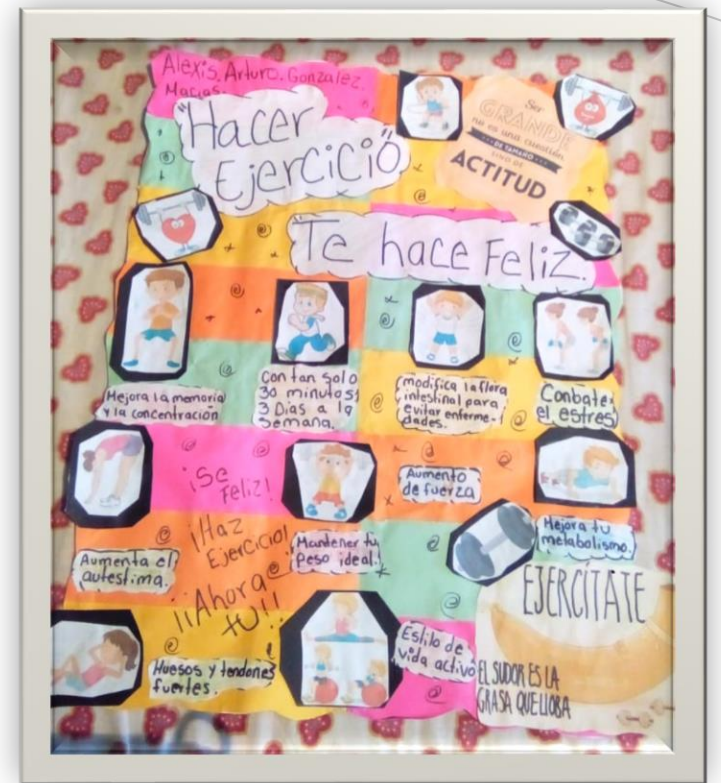 Alexis. Arturo. Gonzalez.
Macias.
"Hacer
Ejercicio"
Ser
GRANDE
no es una cuestión
DE TAMAÑO
SINO DE
ACTITUD
Te hace Feliz.
Mejora la memoria
y la concentración
Con tan solo
30 minutos
3 Dias a la
Semana.
modifica la flora
intestinal para
evitar enferme-
dades.
Conbate
el estres
¡Se
Feliz!
Aumento
de fuerza
¡Haz
Ejercicio!
Mantener tu
Peso ideal.
Mejora tu
metabolismo.
Aumenta el
autestima.
¡¡Ahora
tU!!
EJERCÍTATE
Huesos y tendones
fuertes.
Estilo de
vida activo
EL SUDOR ES LA
GRASA QUE LLORA